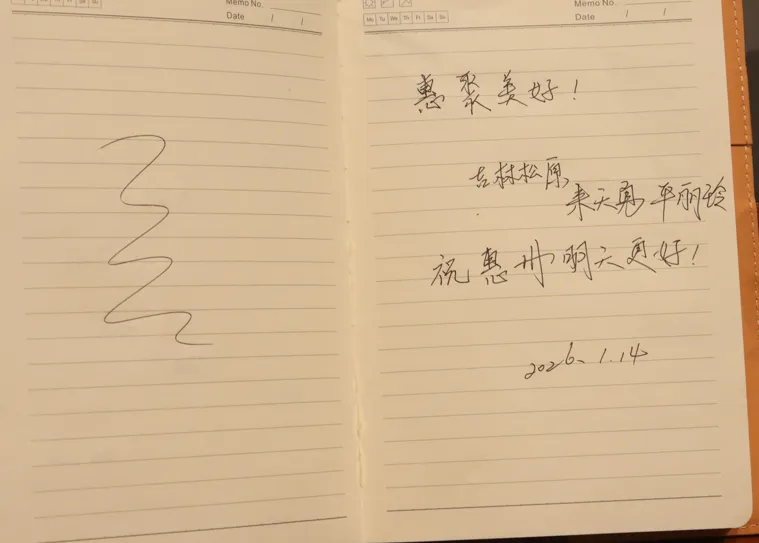 Memo No.
Date / /
Mo Tu We Th Fr Sa Su
Memo No.
Date / /
惠聚美好！
吉林松原
来天勇 平丽玲
祝惠州明天更好！
2026.1.14